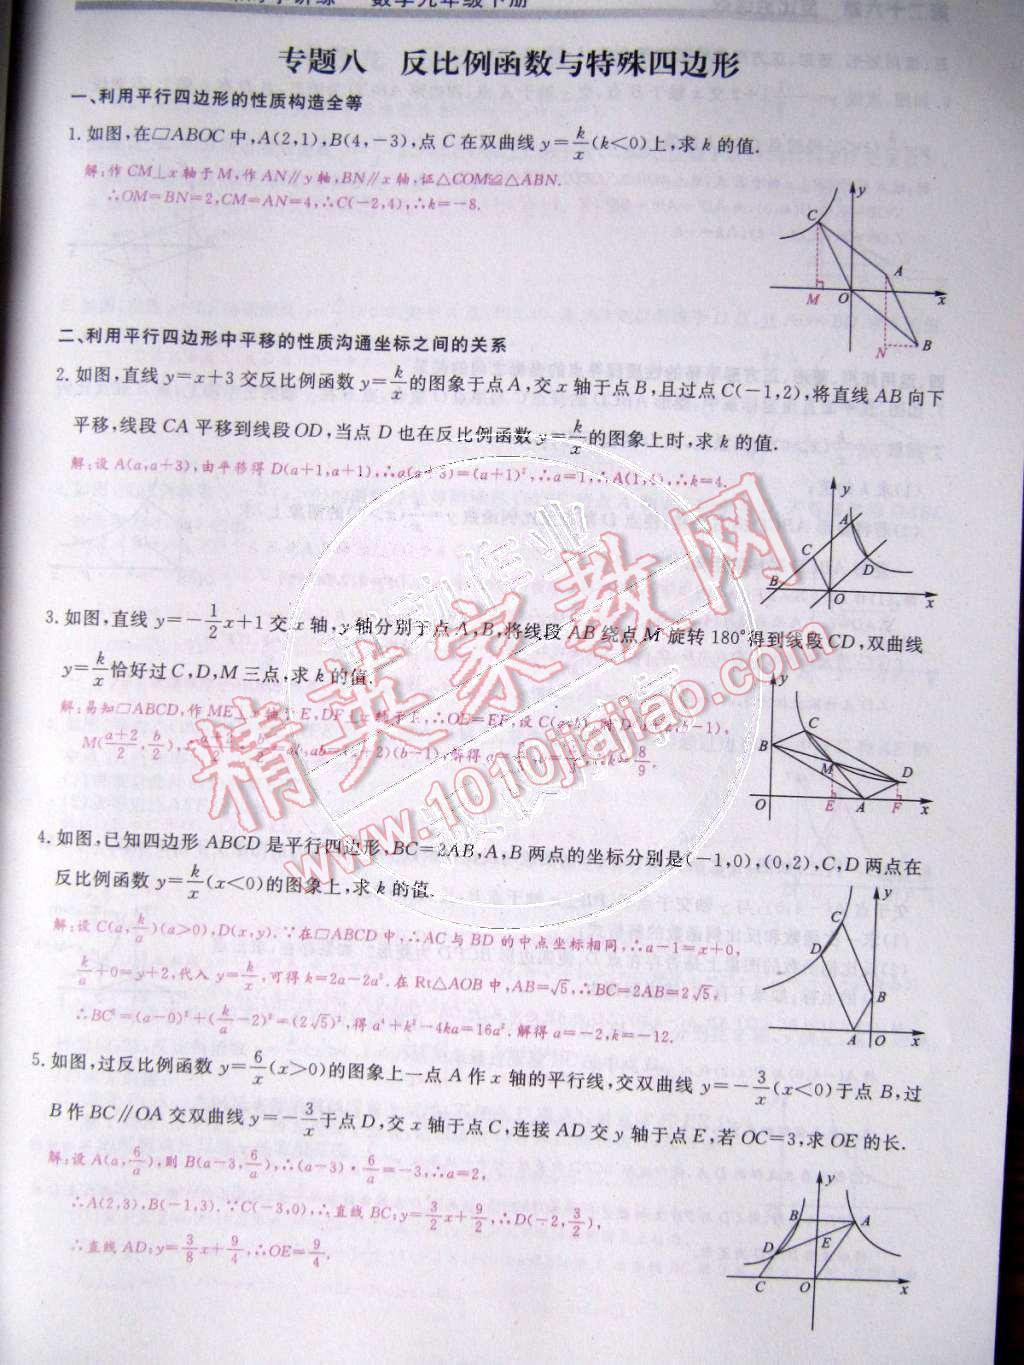 数学九年级下册
专题八 反比例函数与特殊四边形
一、利用平行四边形的性质构造全等
1.如图,在▱ABOC中,A(2,1),B(4,-3),点C在双曲线y=k/x(k<0)上,求k的值.
解:作CM⊥x轴于M,作AN∥y轴,BN∥x轴,证△COM≌△ABN.
∴OM=BN=2,CM=AN=4,∴C(-2,4),∴k=-8.
y
C
A
M O x
N B
二、利用平行四边形中平移的性质沟通坐标之间的关系
2.如图,直线y=x+3交反比例函数y=k/x的图象于点A,交x轴于点B,且过点C(-1,2),将直线AB向下
平移,线段CA平移到线段OD,当点D也在反比例函数y=k/x的图象上时,求k的值.
解:设A(a,a+3),由平移得D(a+1,a+1),∴a(a+3)=(a+1)²,∴a=1,∴A(1,4),∴k=4.
y
A
C D
B O x
3.如图,直线y=-1/2x+1交x轴,y轴分别于点A,B,将线段AB绕点M旋转180°得到线段CD,双曲线
y=k/x恰好过C,D,M三点,求k的值.
解:易知▱ABCD,作ME⊥x轴于E,DF⊥x轴于F,∴OE=EF,设C(a,b),则D(a+2,b-1),
M((a+2)/2,b/2),
ab=(a+2)(b-1),解得
y
C
B M D
O E A F x
4.如图,已知四边形ABCD是平行四边形,BC=2AB,A,B两点的坐标分别是(-1,0),(0,2),C,D两点在
反比例函数y=k/x(x<0)的图象上,求k的值.
解:设C(a,k/a)(a>0),D(x,y).∵在▱ABCD中,∴AC与BD的中点坐标相同,∴a-1=x+0,
k/a+0=y+2,代入y=k/x,可得k=2a-2a².在Rt△AOB中,AB=√5,∴BC=2AB=2√5,
∴BC²=(a-0)²+(k/a-2)²=(2√5)²,得a⁴+k²-4ka=16a².解得a=-2,k=-12.
y
C
D
B
A O x
5.如图,过反比例函数y=6/x(x>0)的图象上一点A作x轴的平行线,交双曲线y=-3/x(x<0)于点B,过
B作BC∥OA交双曲线y=-3/x于点D,交x轴于点C,连接AD交y轴于点E,若OC=3,求OE的长.
解:设A(a,6/a),则B(a-3,6/a),∴(a-3)·6/a=-3,∴a=2,
∴A(2,3),B(-1,3).∵C(-3,0),∴直线BC:y=3/2x+9/2,∴D(-2,3/2),
∴直线AD:y=3/8x+9/4,∴OE=9/4.
y
B A
D E
C O x
精英家教网
www.1010jiajiao.com